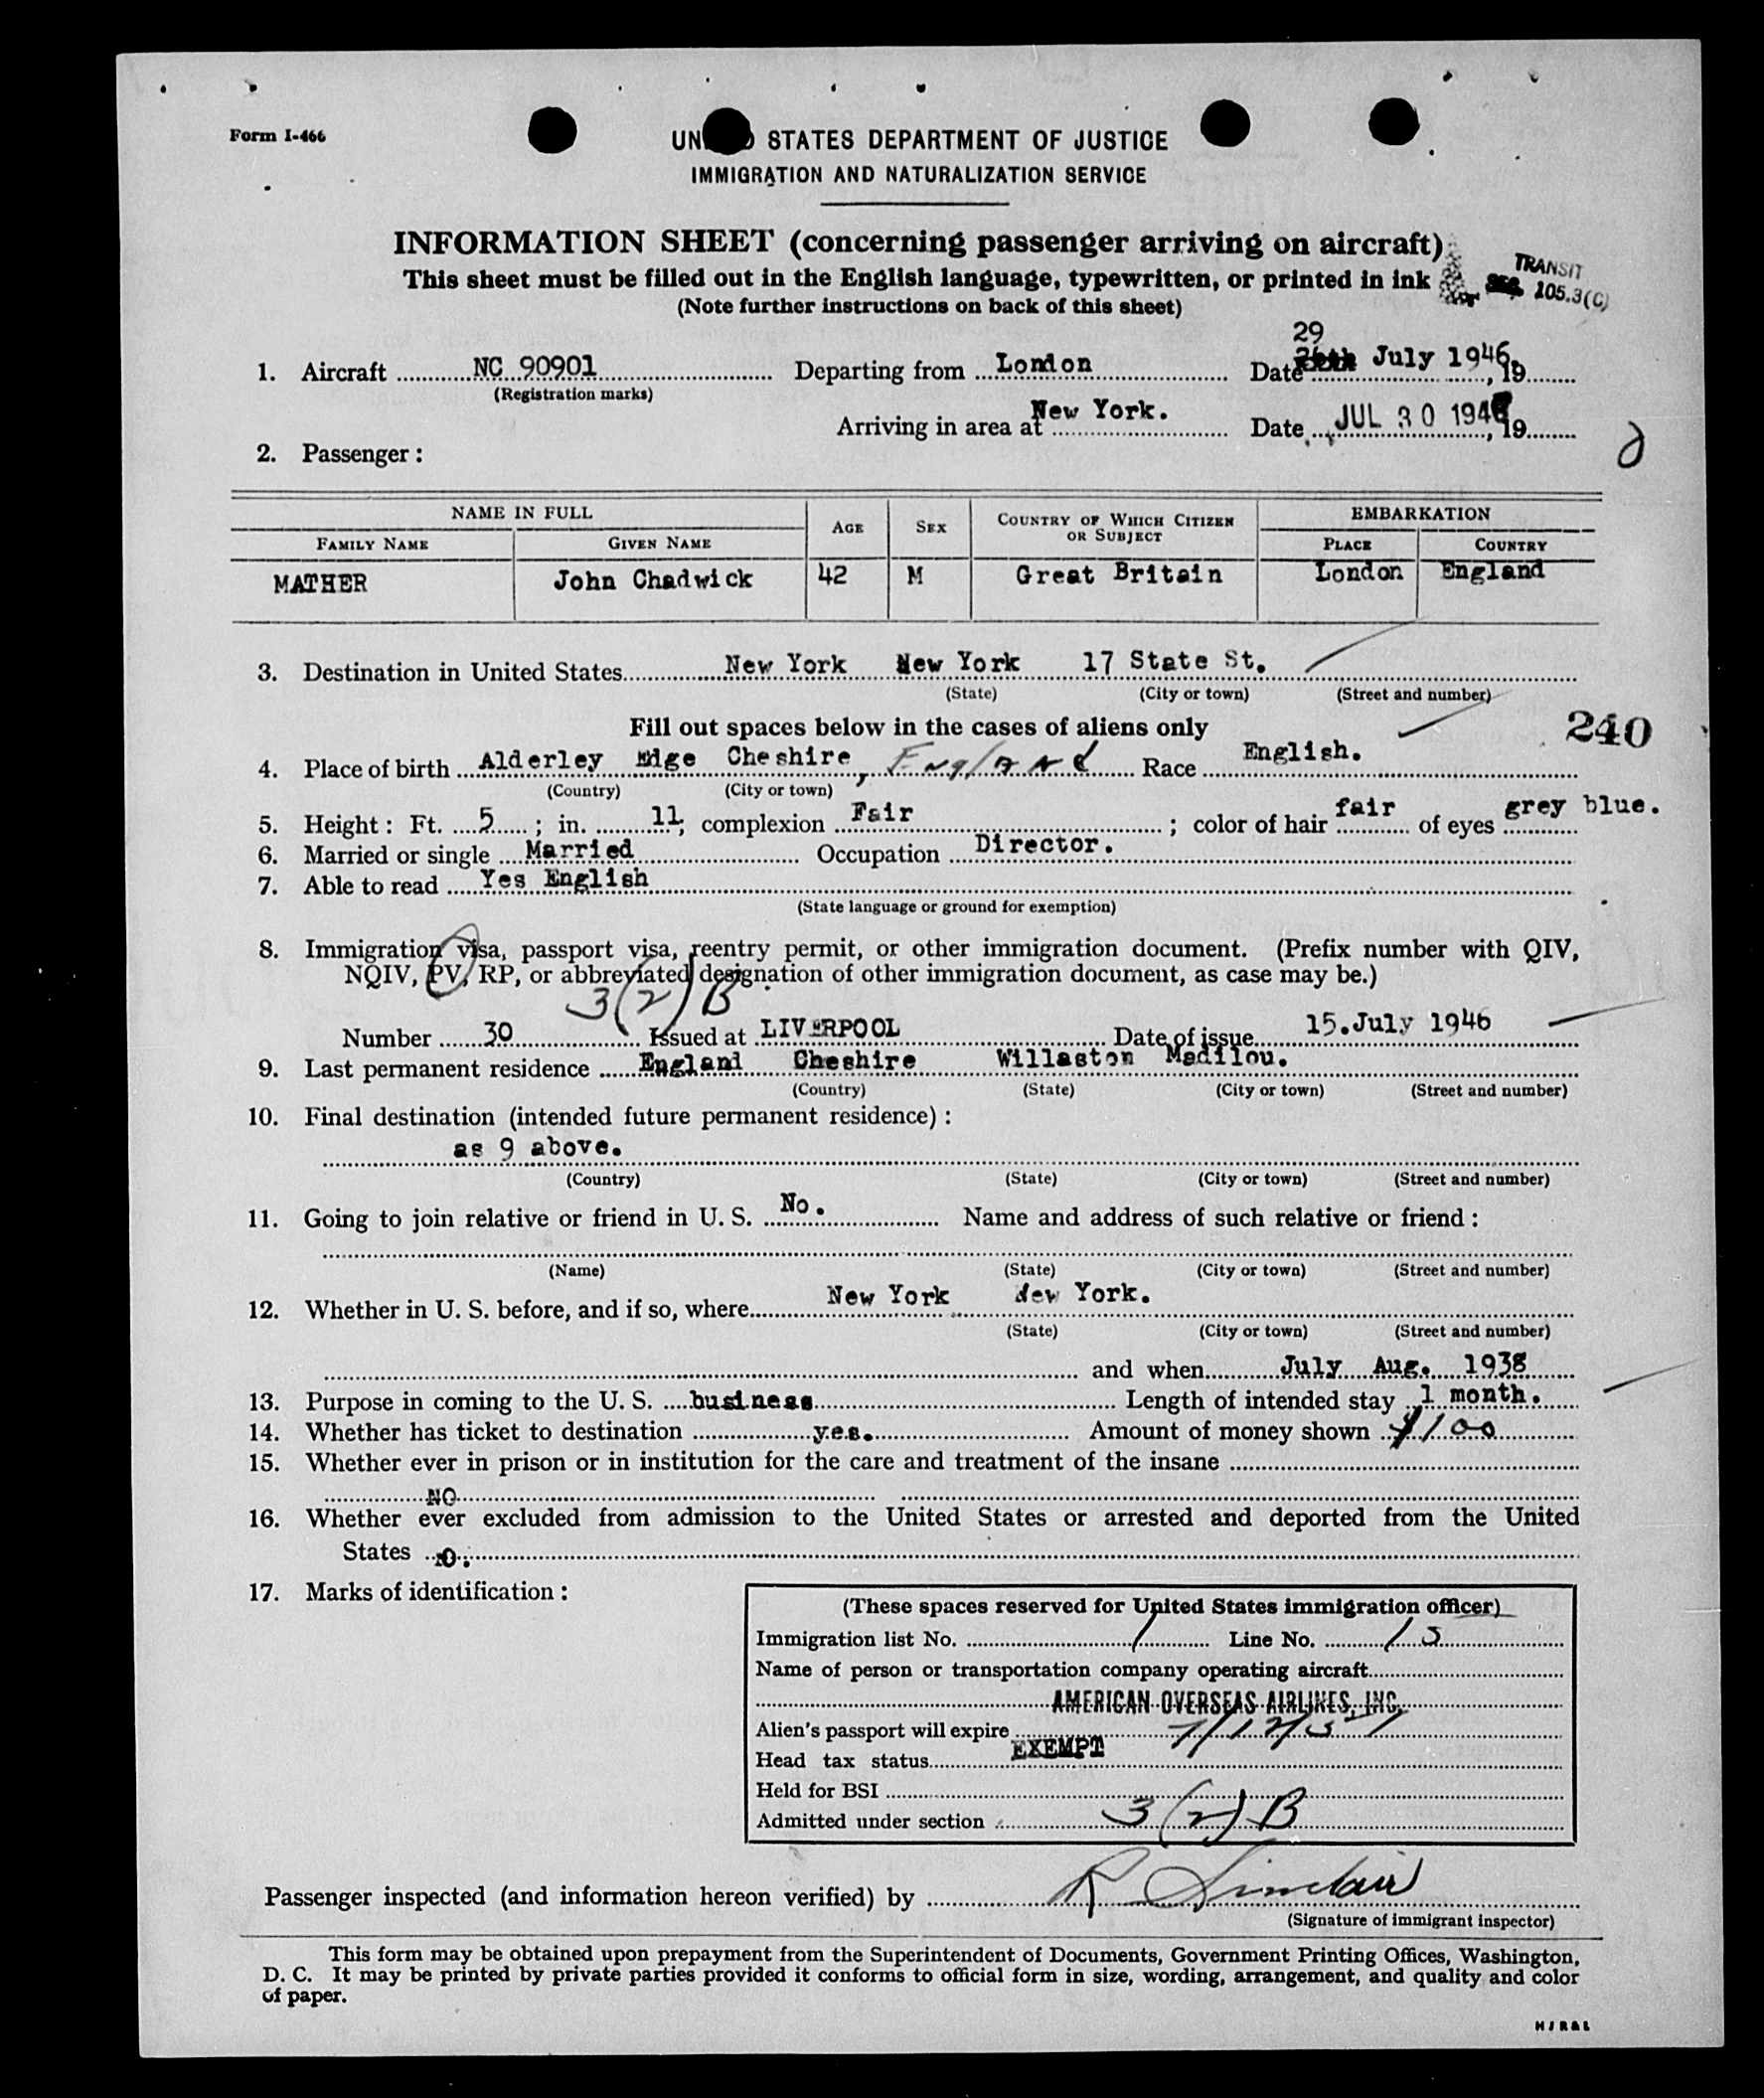 Form I-466
STATES DEPARTMENT OF JUSTICE
IMMIGRATION AND NATURALIZATION SERVICE
INFORMATION SHEET (concerning passenger arriving on aircraft)
This sheet must be filled out in the English language, typewritten, or printed in ink
(Note further instructions on back of this sheet)
TRANSIT
105.3(C)
29
1. Aircraft NC 90901 Departing from London Date July 1946, 19
(Registration marks)
Arriving in area at New York. Date JUL 30 1946, 19
2. Passenger:
NAME IN FULL AGE SEX COUNTRY OF WHICH CITIZEN OR SUBJECT EMBARKATION
FAMILY NAME GIVEN NAME PLACE COUNTRY
MATHER John Chadwick 42 M Great Britain London England
3. Destination in United States New York New York 17 State St.
(State) (City or town) (Street and number)
Fill out spaces below in the cases of aliens only
240
4. Place of birth Alderley Edge Cheshire, England Race English.
(Country) (City or town)
5. Height: Ft. 5; in. 11; complexion Fair; color of hair fair of eyes grey blue.
6. Married or single Married Occupation Director.
7. Able to read Yes English
(State language or ground for exemption)
8. Immigration visa, passport visa, reentry permit, or other immigration document. (Prefix number with QIV,
NQIV, PV, RP, or abbreviated designation of other immigration document, as case may be.)
3(2)B
Number 30 Issued at LIVERPOOL Date of issue 15.July 1946
9. Last permanent residence England Cheshire Willaston Madilou.
(Country) (State) (City or town) (Street and number)
10. Final destination (intended future permanent residence):
as 9 above.
(Country) (State) (City or town) (Street and number)
11. Going to join relative or friend in U. S. No. Name and address of such relative or friend:
(Name) (State) (City or town) (Street and number)
12. Whether in U. S. before, and if so, where New York New York.
(State) (City or town) (Street and number)
and when July Aug. 1938
13. Purpose in coming to the U. S. business Length of intended stay 1 month.
14. Whether has ticket to destination yes. Amount of money shown $100
15. Whether ever in prison or in institution for the care and treatment of the insane
NO
16. Whether ever excluded from admission to the United States or arrested and deported from the United
States
17. Marks of identification:
(These spaces reserved for United States immigration officer)
Immigration list No. 1 Line No. 15
Name of person or transportation company operating aircraft
AMERICAN OVERSEAS AIRLINES, INC.
Alien's passport will expire 7/12/51
Head tax status EXEMPT
Held for BSI
Admitted under section 3(2)B
Passenger inspected (and information hereon verified) by R Sinclair
(Signature of immigrant inspector)
This form may be obtained upon prepayment from the Superintendent of Documents, Government Printing Offices, Washington,
D. C. It may be printed by private parties provided it conforms to official form in size, wording, arrangement, and quality and color
of paper.